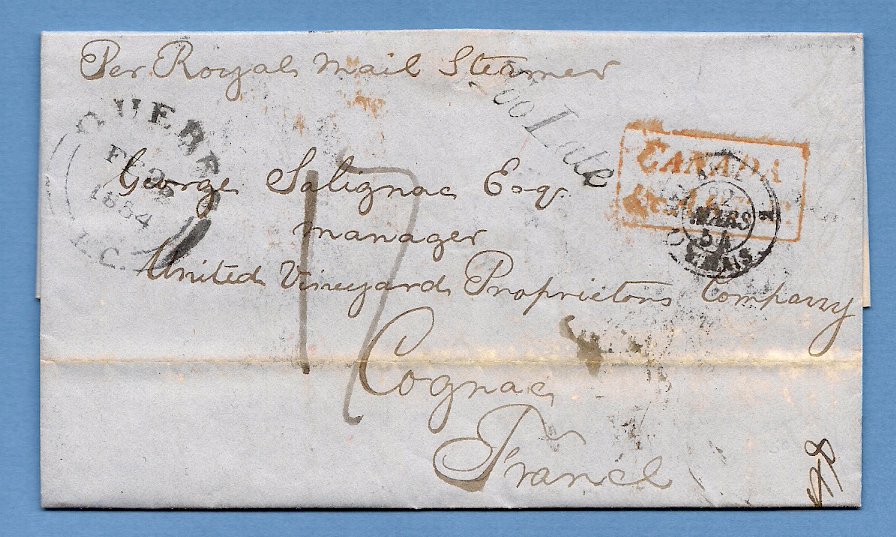 Per Royal Mail Steamer
Too Late
QUEBEC
FE
1854
L.C.
CANADA
22
MARS
54
CALAIS
George Salignac Esqr
manager
United Vineyard Proprietors Company
17
Cognac
France